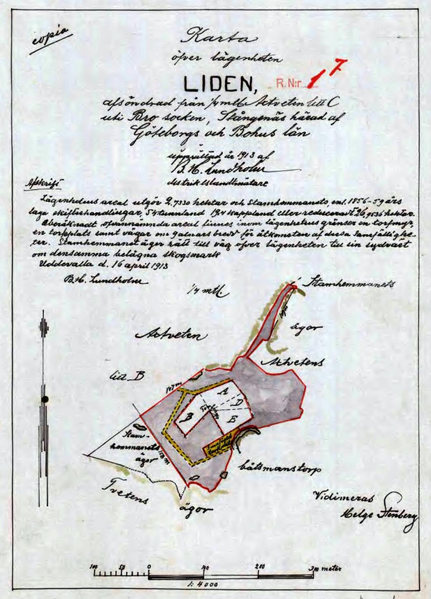 copia
Karta
öfver lägenheten
LIDEN,
R.Nr 1 7
afsöndrad från 1/4 mtl Åtveten litt C
uti Bro socken, Stångenäs härad af
Göteborgs och Bohus län
upprättad år 1913 af
B. H. Lundholm
distriktslandtmätare
Afskrift
Lägenhetens areal utgör 2,7330 hektar och Stamhemmanets, enl. 1856-59 års
laga skifteshandlingar, 54 tunnland
Oberäknadt ofvannämnda areal finnes inom lägenhetens gränser en torfmosse,
en torkplats samt vägar
Stamhemmanet äger rätt till väg öfver lägenheten till sin sydväst
om densamma belägna skogsmark
Uddevalla d. 16 april 1913
B. H. Lundholm
1/4 mtl
Stamhemmanets
ägor
Åtveten
Åtvetens
Lit. B
A
D
B
E
Stam-
hemmanets
ägor
båtsmanstorp
Tvetens
ägor
Vidimeras
Helge Stenberg
100
50
0
100
200
300 meter
1:4000